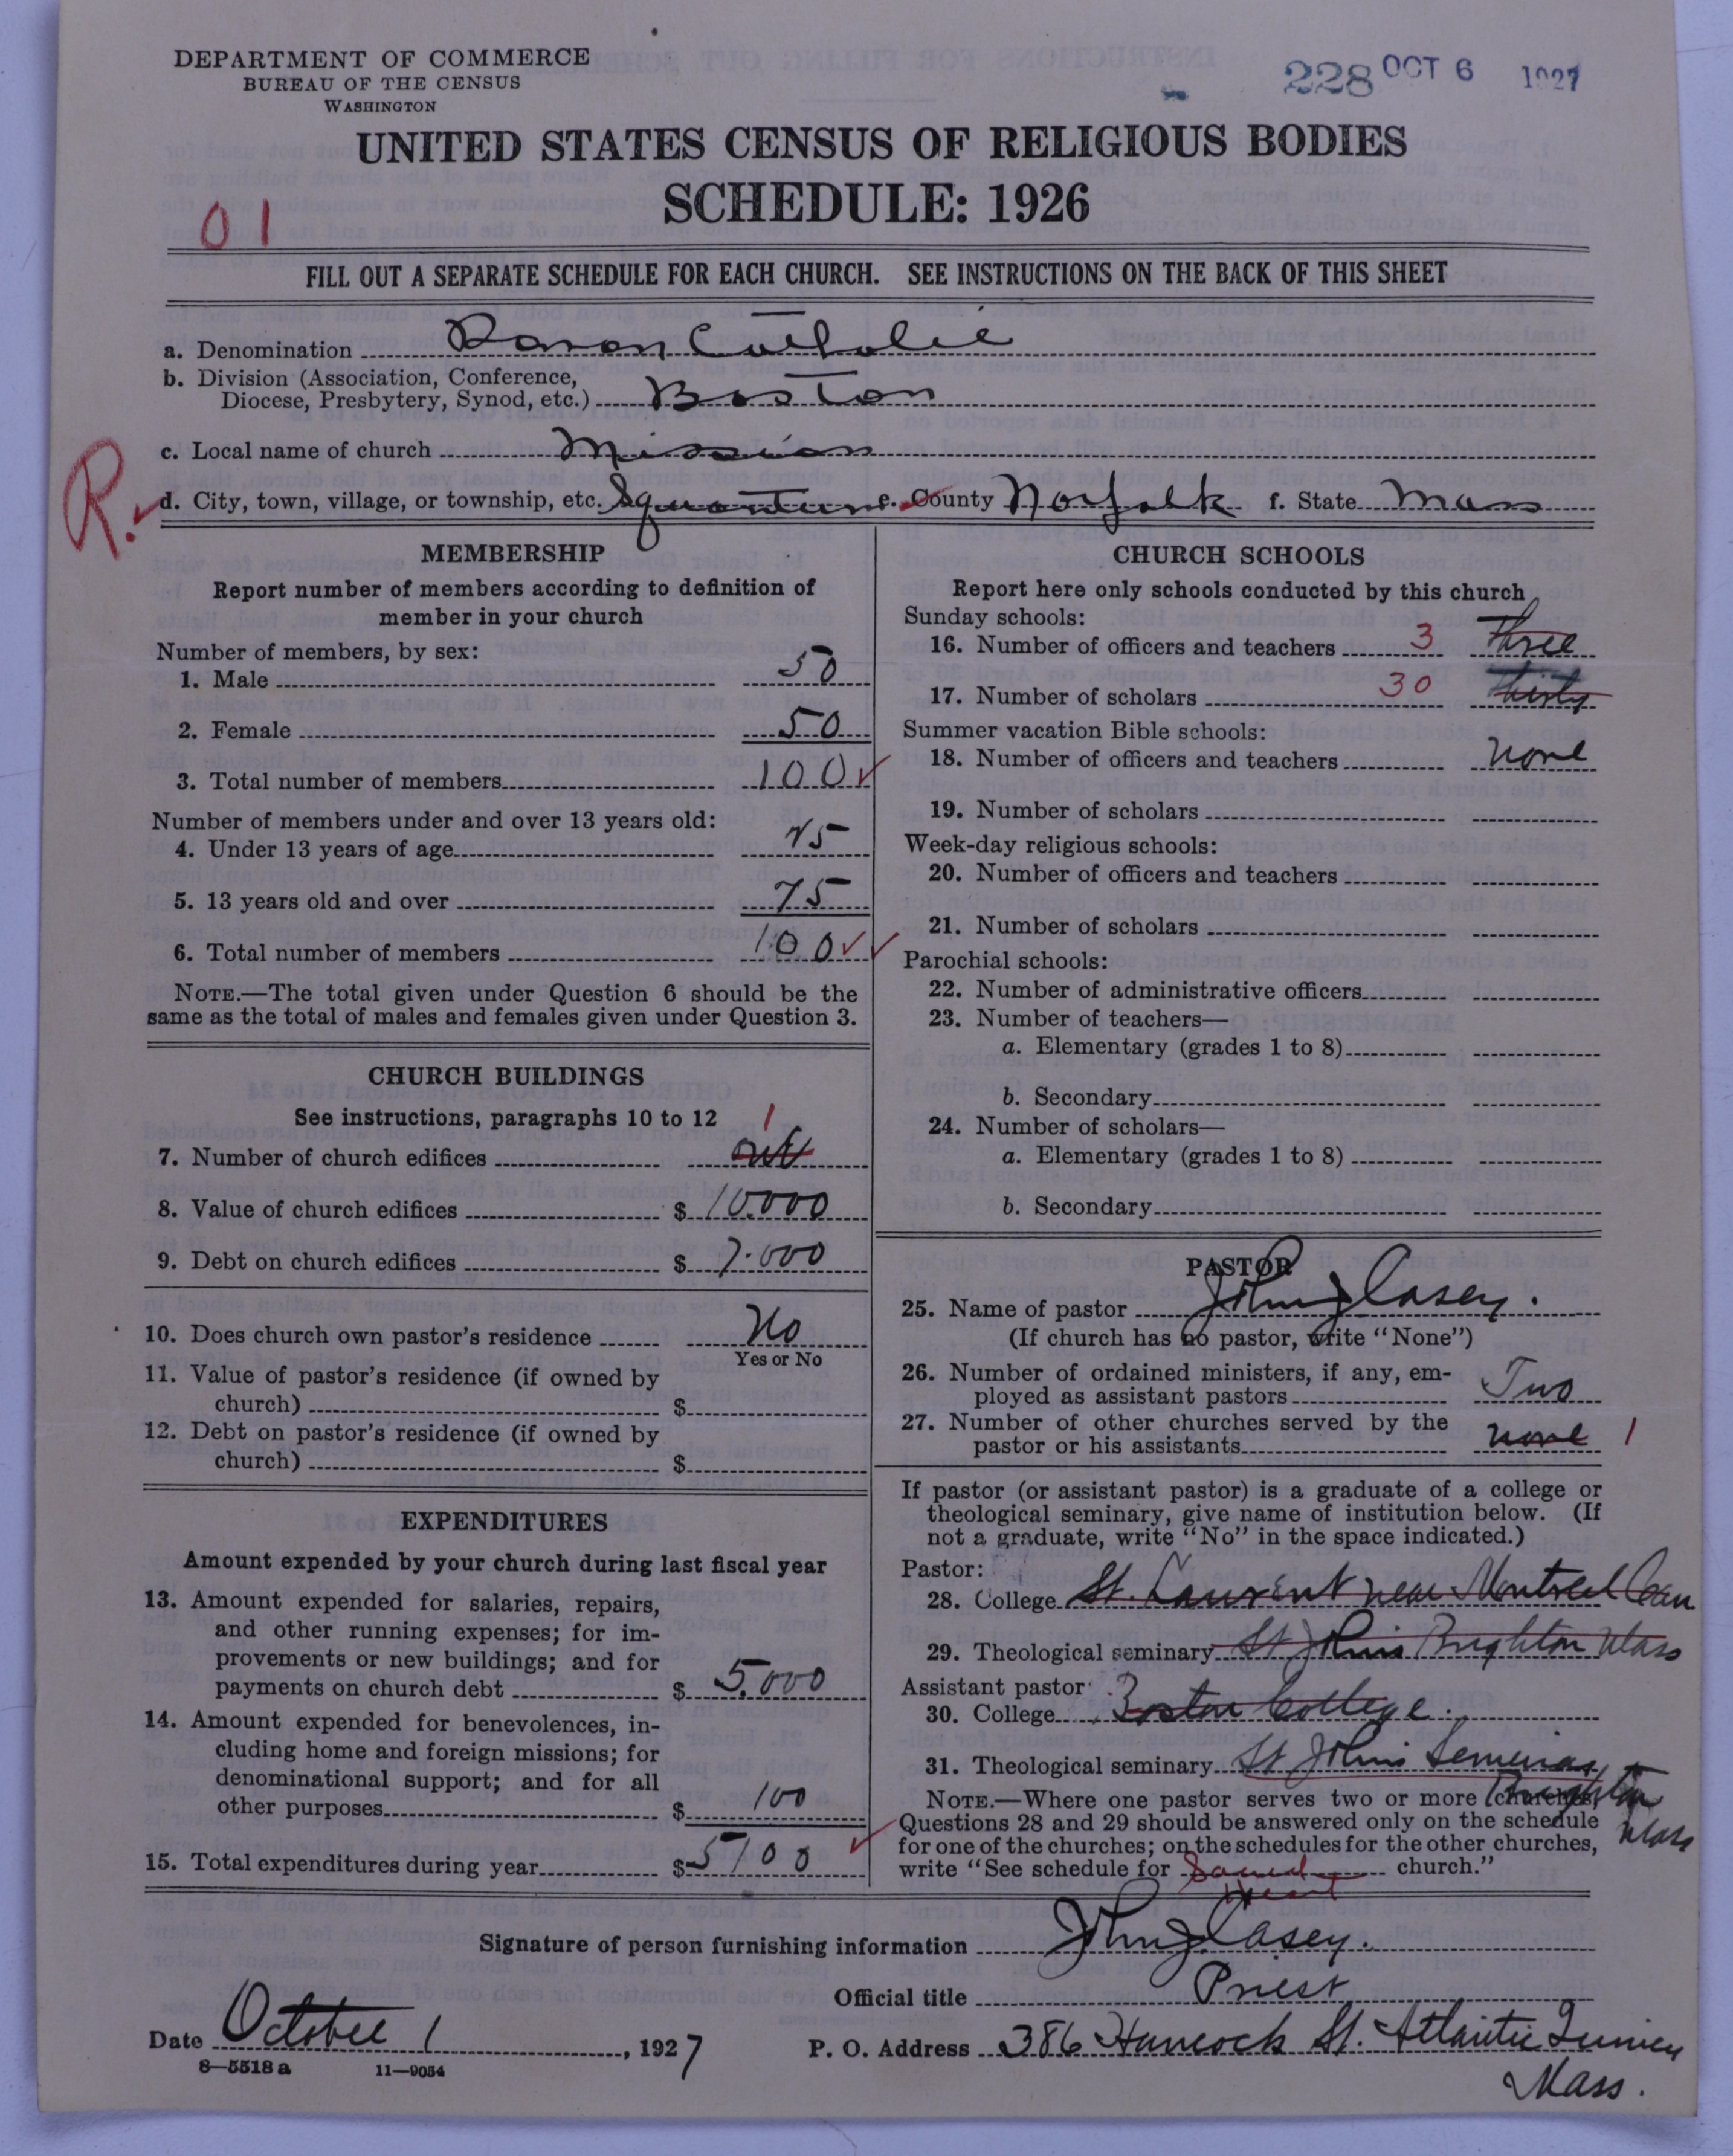 DEPARTMENT OF COMMERCE
BUREAU OF THE CENSUS
WASHINGTON
228 OCT 6 1927
UNITED STATES CENSUS OF RELIGIOUS BODIES
SCHEDULE: 1926
01
FILL OUT A SEPARATE SCHEDULE FOR EACH CHURCH. SEE INSTRUCTIONS ON THE BACK OF THIS SHEET
a. Denomination Roman Catholic
b. Division (Association, Conference,
Diocese, Presbytery, Synod, etc.) Boston
c. Local name of church Mission
R.
d. City, town, village, or township, etc. Squantum e. County Norfolk f. State Mass
MEMBERSHIP
Report number of members according to definition of
member in your church
Number of members, by sex:
1. Male 50
2. Female 50
3. Total number of members 100
Number of members under and over 13 years old:
4. Under 13 years of age 25
5. 13 years old and over 75
6. Total number of members 100
NOTE.—The total given under Question 6 should be the
same as the total of males and females given under Question 3.
CHURCH BUILDINGS
See instructions, paragraphs 10 to 12
1
7. Number of church edifices one
8. Value of church edifices $ 10.000
9. Debt on church edifices $ 7.000
10. Does church own pastor's residence No
Yes or No
11. Value of pastor's residence (if owned by
church) $
12. Debt on pastor's residence (if owned by
church) $
EXPENDITURES
Amount expended by your church during last fiscal year
13. Amount expended for salaries, repairs,
and other running expenses; for im-
provements or new buildings; and for
payments on church debt $ 5.000
14. Amount expended for benevolences, in-
cluding home and foreign missions; for
denominational support; and for all
other purposes $ 100
15. Total expenditures during year $ 5100
CHURCH SCHOOLS
Report here only schools conducted by this church
Sunday schools:
16. Number of officers and teachers 3 three
17. Number of scholars 30 thirty
Summer vacation Bible schools:
18. Number of officers and teachers none
19. Number of scholars
Week-day religious schools:
20. Number of officers and teachers
21. Number of scholars
Parochial schools:
22. Number of administrative officers
23. Number of teachers—
a. Elementary (grades 1 to 8)
b. Secondary
24. Number of scholars—
a. Elementary (grades 1 to 8)
b. Secondary
PASTOR
25. Name of pastor John J Casey.
(If church has no pastor, write "None")
26. Number of ordained ministers, if any, em-
ployed as assistant pastors Two
27. Number of other churches served by the
pastor or his assistants none 1
If pastor (or assistant pastor) is a graduate of a college or
theological seminary, give name of institution below. (If
not a graduate, write "No" in the space indicated.)
Pastor:
28. College St. Laurent near Montreal Can
29. Theological seminary St Johns Brighton Mass
Assistant pastor
30. College Boston College.
31. Theological seminary St Johns Seminary
Brighton
Mass
NOTE.—Where one pastor serves two or more churches,
Questions 28 and 29 should be answered only on the schedule
for one of the churches; on the schedules for the other churches,
write "See schedule for Sacred Heart church."
Signature of person furnishing information John J Casey.
Official title Priest
Date October 1, 1927 P. O. Address 386 Hancock St. Atlantic Quincy
Mass.
8—5518 a 11—9054